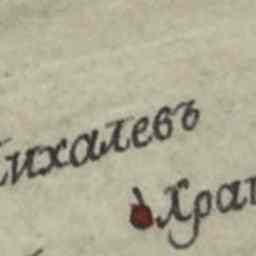 Михалевъ
Храп